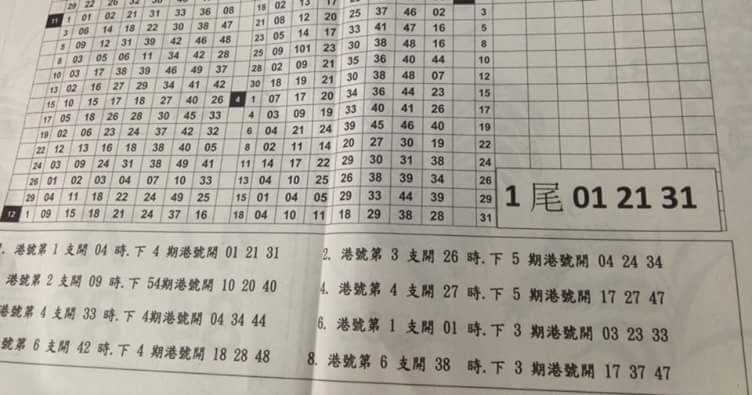 11 1 01 02 21 31 33 36 08 18 02 13 17
3 06 14 18 22 30 38 47 21 08 12 20 25 37 46 02 3
5 09 12 31 39 42 46 48 23 05 14 17 33 41 47 16 5
8 03 05 06 11 34 42 28 25 09 101 23 30 38 48 16 8
10 03 17 38 39 46 49 37 28 02 09 21 35 36 40 44 10
13 02 16 27 29 34 41 42 30 18 19 21 30 38 48 07 12
15 10 15 17 18 27 40 26 4 1 07 17 20 34 36 44 23 15
17 05 18 26 28 30 45 33 4 03 09 19 33 40 41 26 17
19 02 06 23 24 37 42 32 6 04 21 24 39 45 46 40 19
22 12 13 16 18 38 40 05 8 02 11 14 20 27 30 19 22
24 03 09 24 31 38 49 41 11 14 17 22 29 30 31 38 24
26 01 02 03 04 07 10 33 13 04 10 25 26 38 39 34 26
29 04 11 18 22 24 49 25 15 01 04 05 29 33 44 39 29
12 1 09 15 18 21 24 37 16 18 04 10 11 18 29 38 28 31
1尾 01 21 31
港號第 1 支開 04 時.下 4 期港號開 01 21 31
2. 港號第 3 支開 26 時.下 5 期港號開 04 24 34
港號第 2 支開 09 時.下 54期港號開 10 20 40
4. 港號第 4 支開 27 時.下 5 期港號開 17 27 47
港號第 4 支開 33 時.下 4期港號開 04 34 44
6. 港號第 1 支開 01 時.下 3 期港號開 03 23 33
號第 6 支開 42 時.下 4 期港號開 18 28 48
8. 港號第 6 支開 38 時.下 3 期港號開 17 37 47